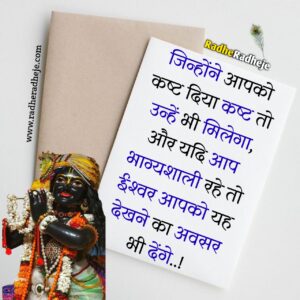 RadheRadheje
जिन्होंने आपको
कष्ट दिया कष्ट तो
उन्हें भी मिलेगा,
और यदि आप
भाग्यशाली रहे तो
ईश्वर आपको यह
देखने का अवसर
भी देंगे..!
www.radheradheje.com